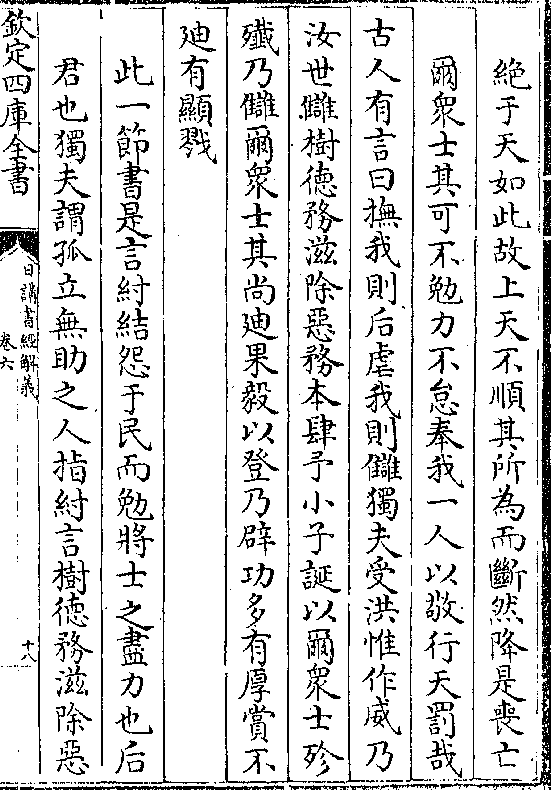 絶于天如此故上天不順其所為而斷然降是喪亡
爾衆士其可不勉力不怠奉我一人以敬行天罰哉
古人有言曰撫我則后虐我則讎獨夫受洪惟作威乃
汝世讎樹德務滋除惡務本肆予小子誕以爾衆士殄
殲乃讎爾衆士其尚廸果毅以登乃辟功多有厚賞不
廸有顯戮
此一節書是言紂結怨于民而勉將士之盡力也后
君也獨夫謂孤立無助之人指紂言樹德務滋除惡
欽定四庫全書
日講書經解義
卷六
十八